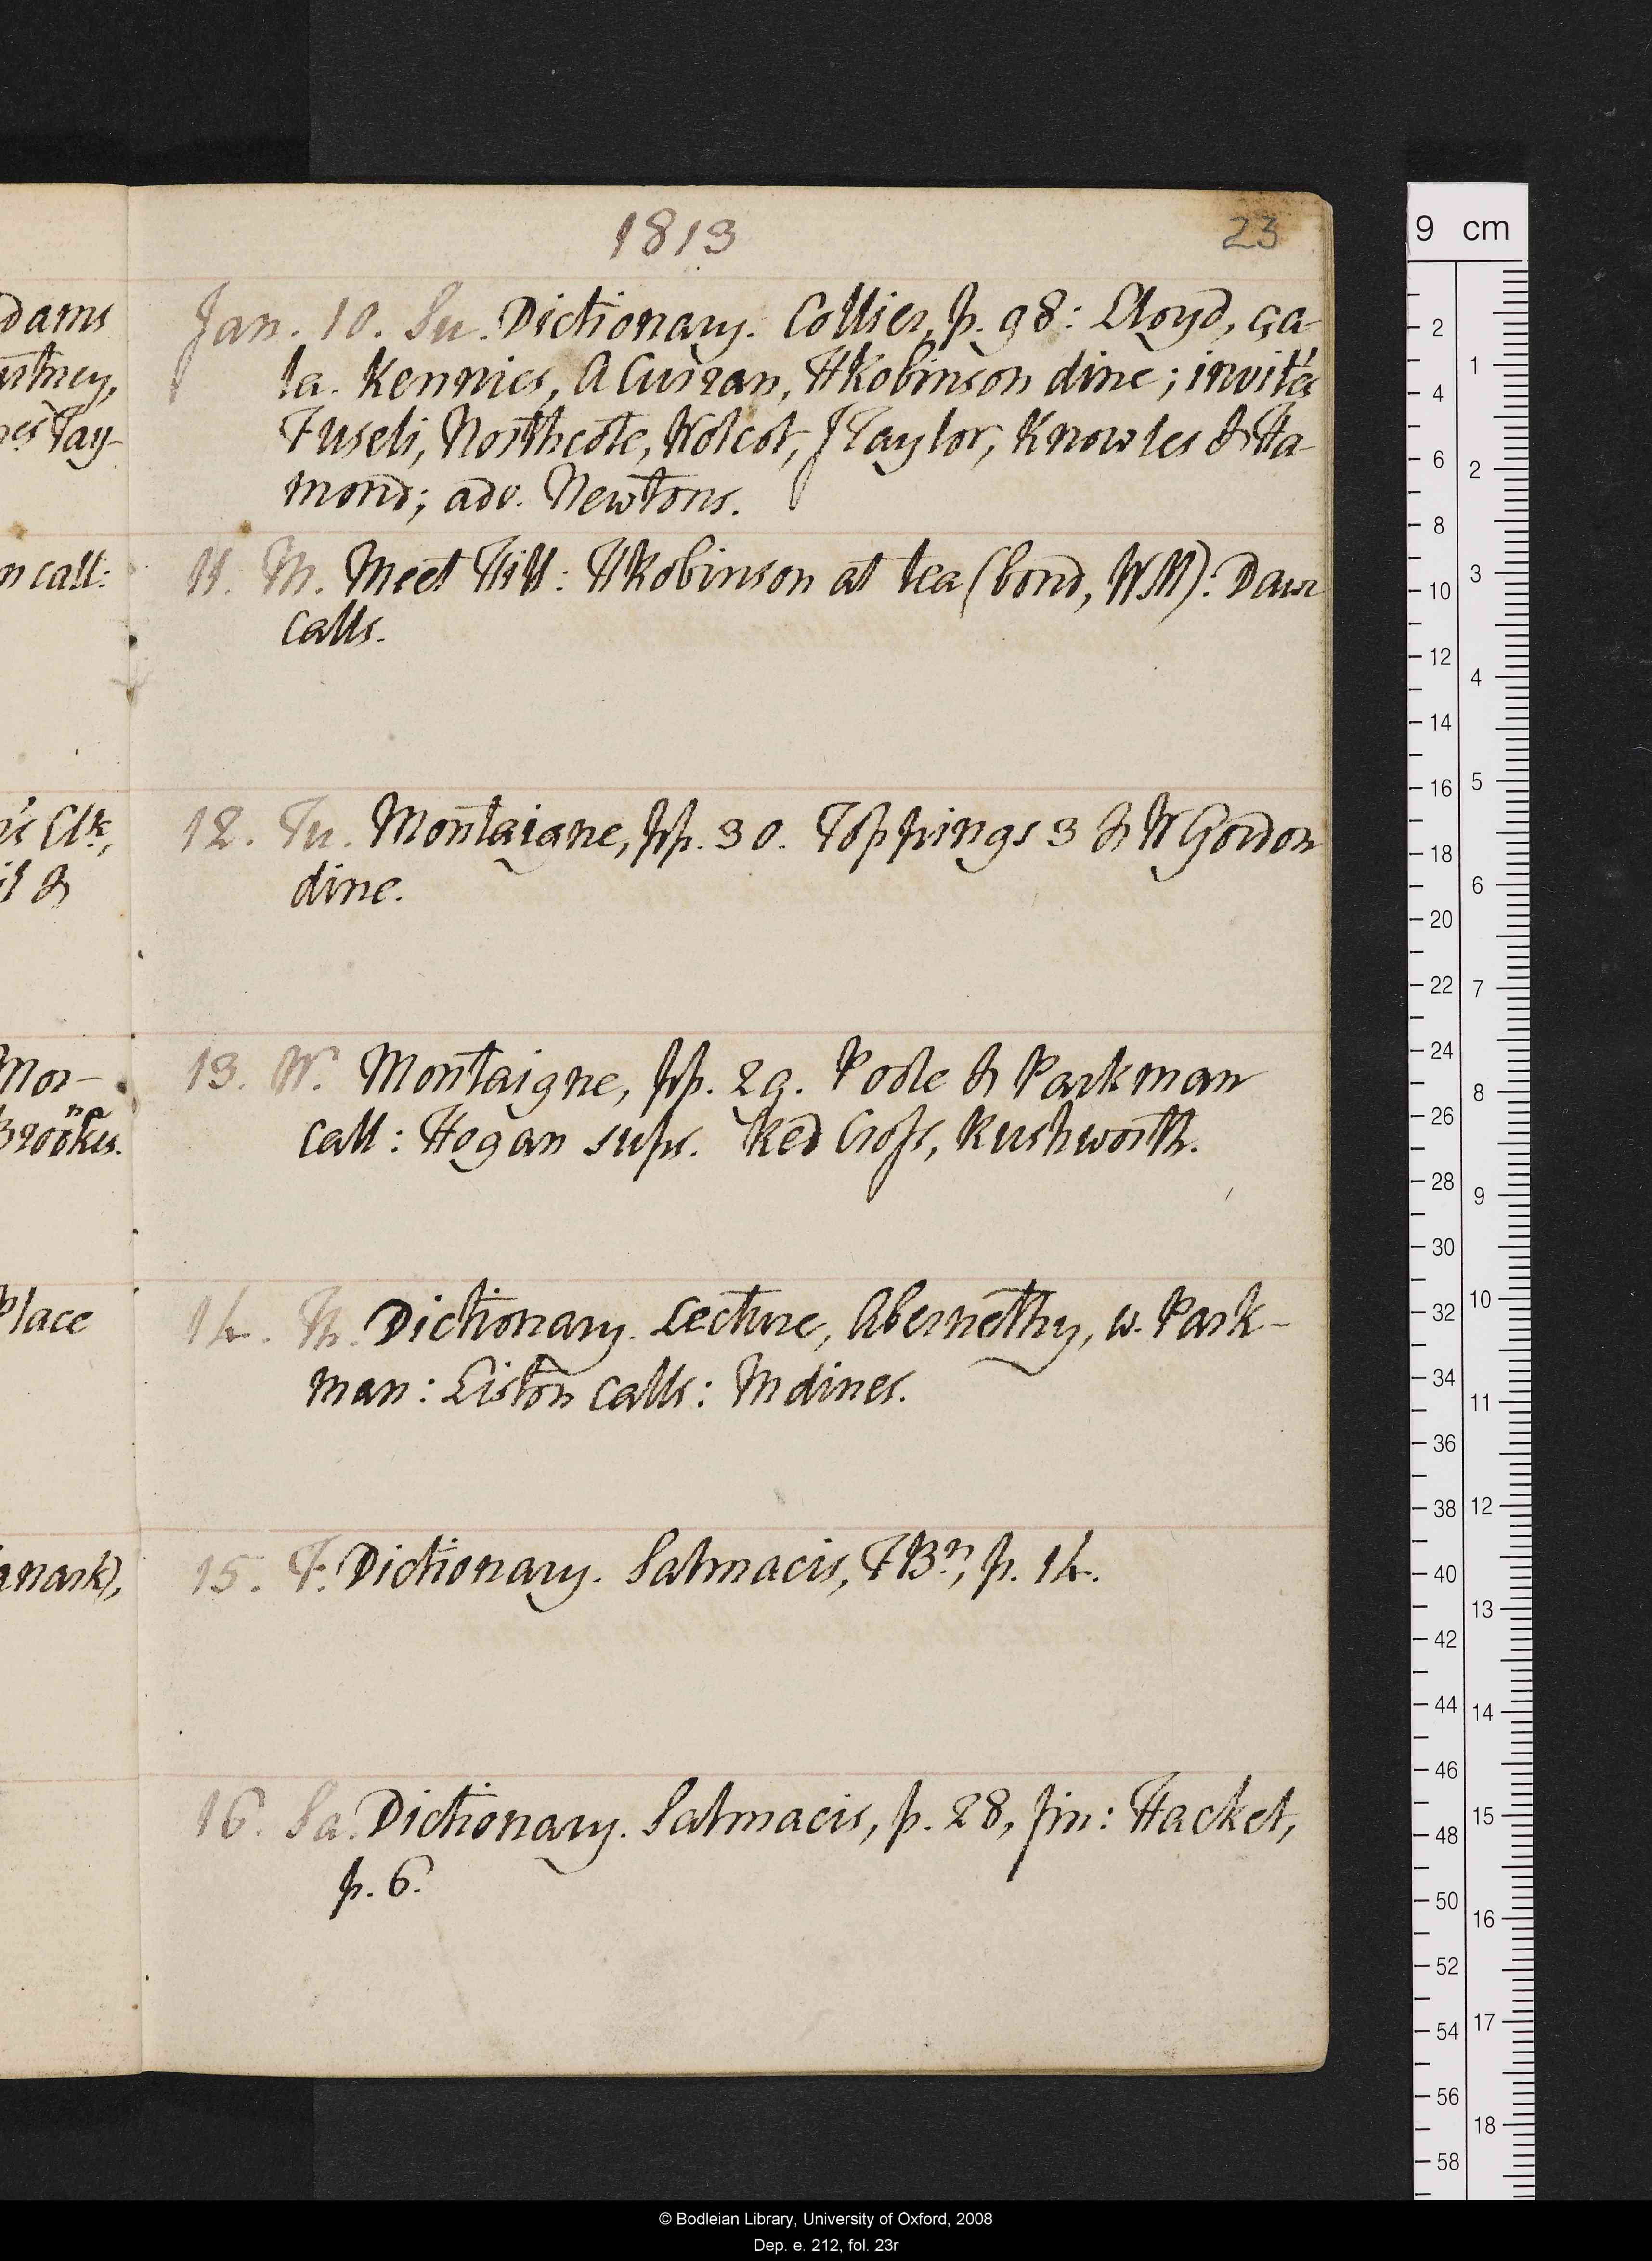 1813
23
Jan. 10. Su. Dictionary. Collier, p. 98: Lloyd, ça-
la. Kennies, A Curran, HRobinson dine; invités
Fuseli, Northcote, Wolcot, JTaylor, Knowles & Ha-
mond; adv. Newtons.
11. M. Meet Hill: HRobinson at tea (bond, WM): Daw
calls.
12. Tu. Montaigne, pp. 30. Toppings 3 & W Gordon
dine.
13. W. Montaigne, pp. 29. Poole & Parkman
call: Hogan sups. Red Cross, Rushworth.
14. Th. Dictionary. Lecture, Abernethy, w. Park-
man: Liston calls: M dines.
15. F. Dictionary. Salmacis, FBn, p. 14.
16. Sa. Dictionary. Salmacis, p. 28, fin: Hacket,
p. 6.
dams
call:
Clk,
&
Mor-
Place
9 cm
2
4
6
8
10
12
14
16
18
20
22
24
26
28
30
32
34
36
38
40
42
44
46
48
50
52
54
56
58
1
2
3
4
5
6
7
8
9
10
11
12
13
14
15
16
17
18
© Bodleian Library, University of Oxford, 2008
Dep. e. 212, fol. 23r